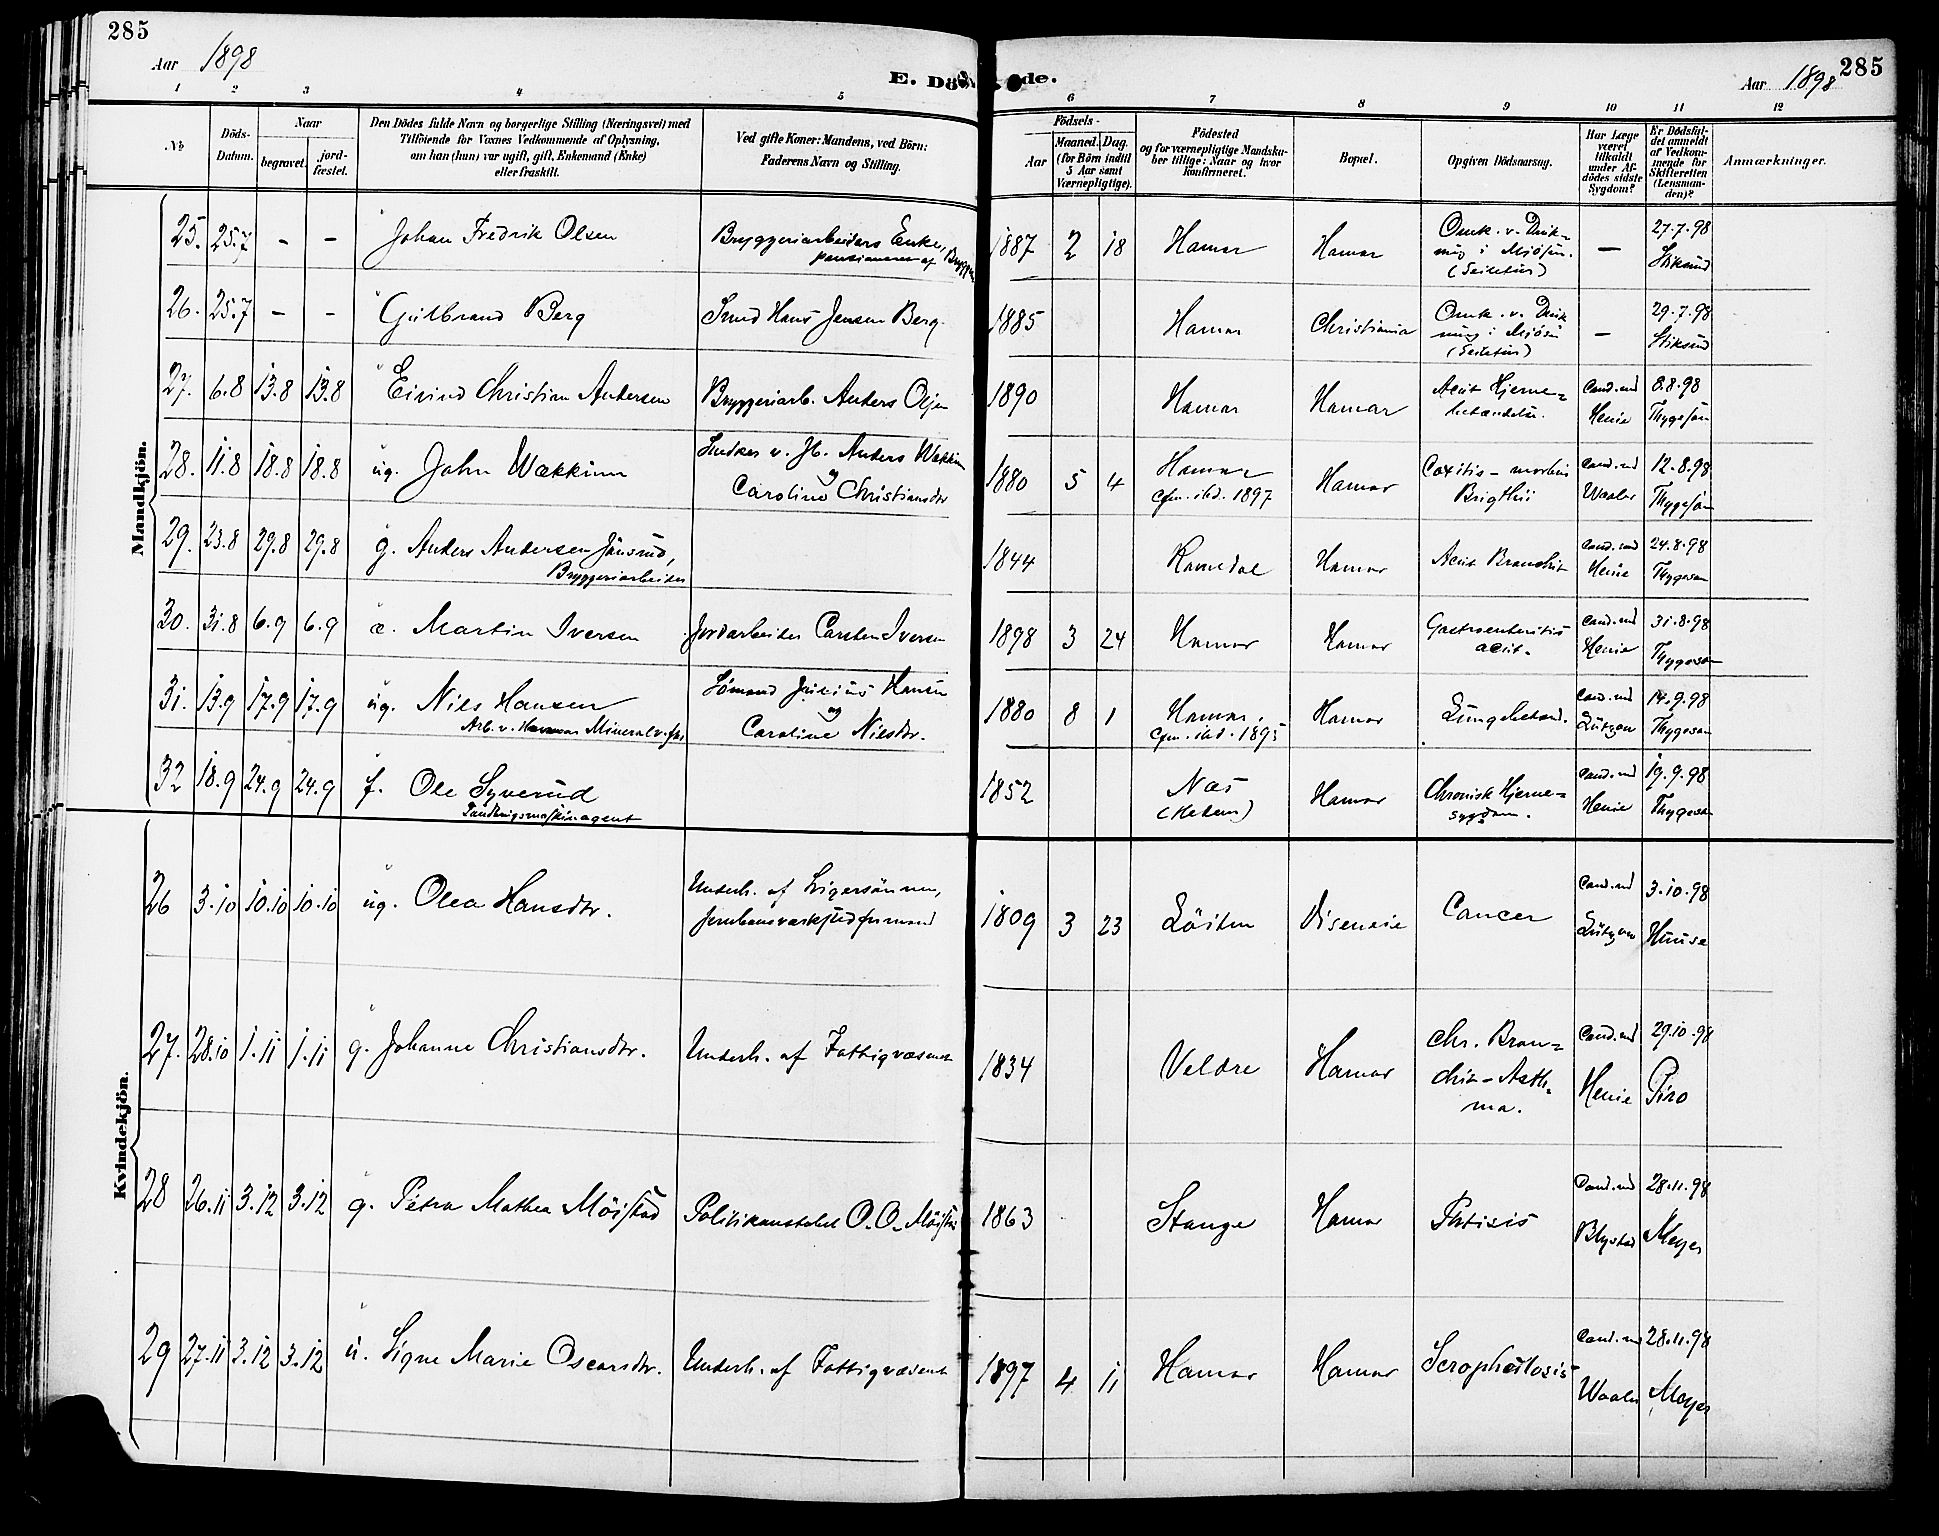 285
Aar 1898
E. Dö
de.
Aar 1898
285
1 2 3 4 5 6 7 8 9 10 11 12
No
Döds-Datum.
Naar
begravet.
jord-fæstet.
Den Dödes fulde Navn og borgerlige Stilling (Næringsvei) med
Tilföiende for Voxnes Vedkommende af Oplysning,
om han (hun) var ugift, gift, Enkemand (Enke)
eller fraskilt.
Ved gifte Koner: Mandens, ved Börn:
Faderens Navn og Stilling.
Födsels-
Aar
Maaned. Dag.
(for Börn indtil
5 Aar samt
Værnepligtige).
Födested
og for værnepligtige Mandskaber tillige: Naar og hvor
konfirmeret.
Bopæl.
Opgiven Dödsaarsag.
Har Læge
været
tilkaldt
under Afdödes sidste
Sygdom?
Er Dödsfaldet anmeldt
af Vedkommende for
Skifteretten
(Lensmanden)?
Anmærkninger.
Mandkjön.
25. 25.7 - - Johan Fredrik Olsen Bryggeriarbeiders Enke, 1887 2 18 Hamar Hamar Omk. v. Drukning i Mjösen. (Seiletur) — 27.7.98
26. 25.7 - - Gulbrand Berg Smed Hans Jensen Berg. 1885 Hamar Christiania Omk. v. Drukning i Mjösen (Seiletur) — 29.7.98
27. 6.8 13.8 13.8 Eivind Christian Andersen Bryggeriarb. Anders Olsen 1890 Hamar Hamar Acut Hjernebetændelse. Cand. med Henie 8.8.98 Thygeson
28. 11.8 18.8 18.8 ug. John Wækkinn v. Jb. Anders Wækkin og Caroline Christiansdtr 1880 5 4 Hamar Cfm. ibd. 1897 Hamar Coxitis - morbus Brigthii Cand. med Waaler 12.8.98 Thygeson
29. 23.8 29.8 29.8 g. Anders Andersen Jönsrud, Bryggeriarbeider 1844 Romedal Hamar Acut Bronchit Cand. med Henie 24.8.98 Thygeson
30. 31.8 6.9 6.9 æ. Martin Iversen Jordarbeider Carsten Iversen 1898 3 24 Hamar Hamar Gastroenteritis acut. Cand. med Henie 31.8.98 Thygeson
31. 13.9 17.9 17.9 ug. Nils Hansen Arb. v. Hamar Mineralv.fbr. Sömand Julius Hansen og Caroline Nilsdtr. 1880 8 1 Hamar. Cfm. ibd. 1895 Hamar Lungebetænd. Cand. med Lützow 14.9.98 Thygeson
32 18.9 24.9 24.9 f. Ole Syverud 1852 Næs (Hedem) Hamar Chronisk Hjernesygdom. Cand. med Henie 19.9.98 Thygeson
Kvindekjön.
26 3.10 10.10 10.10 ug. Olea Hansdtr. Underh. af Svigersönnen, Jernbaneværkstedformand 1809 3 23 Löiten Disenaie Cancer Cand. med Lützow 3.10.98 Huuse
27. 28.10 1.11 1.11 g. Johanne Christiansdtr. Underh. af Fattigvæsenet 1834 Veldre Hamar Chr. Bronchit - Asthma. Cand. med Henie 29.10.98 Piro
28 26.11 3.12 3.12 g. Petra Mathea Möistad Politikonstabel O. O. Möistad 1863 Stange Hamar Phtisis Cand. med Blystad 28.11.98 Meyer
29 27.11 3.12 3.12 u. Signe Marie Oscarsdtr. Underh. af Fattigvæsenet 1897 4 11 Hamar Hamar Scrophulosis Cand. med Waaler 28.11.98 Meyer